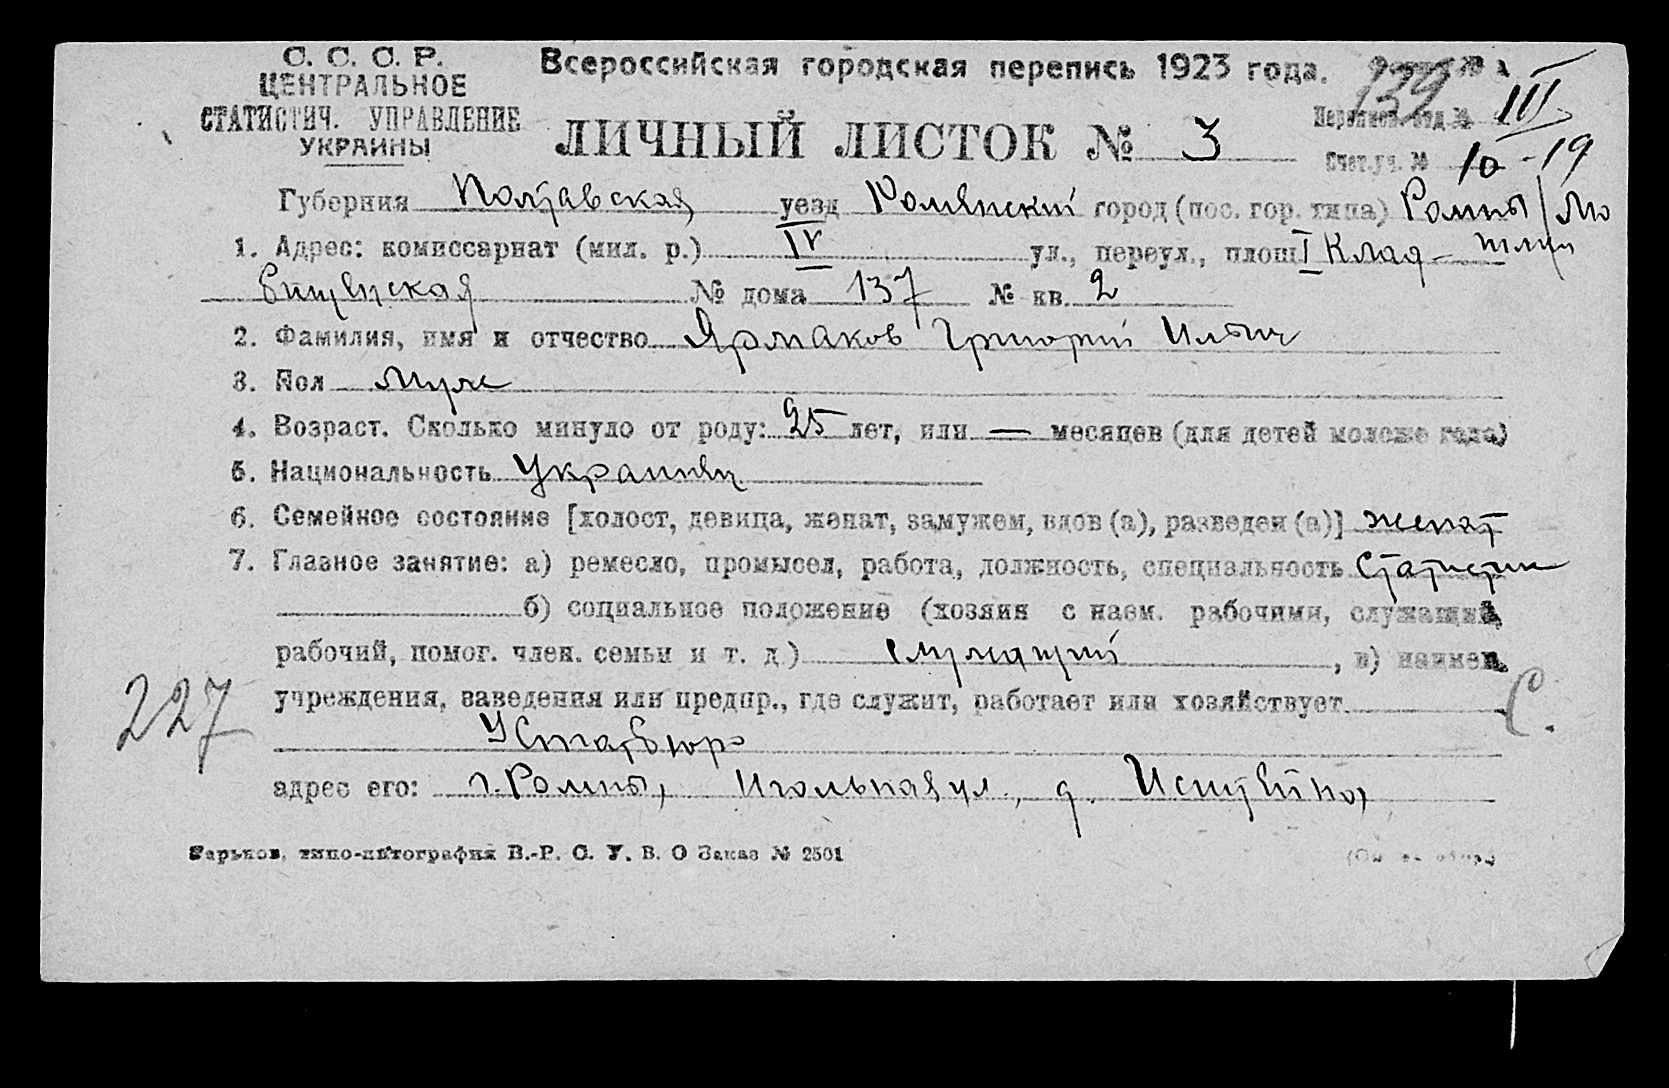 С. С. С. Р.
ЦЕНТРАЛЬНОЕ
СТАТИСТИЧ. УПРАВЛЕНИЕ
УКРАИНЫ
Всероссийская городская перепись 1923 года.
139
III
ЛИЧНЫЙ ЛИСТОК № 3
Счет. уч. № 10 - 19
Губерния Полтавская уезд Роменский город (пос. гор. типа) Ромны
1. Адрес: комиссариат (мил. р.) IV ул., переул., площ I Клад-
бищенская № дома 137 № кв. 2
2. Фамилия, имя и отчество Ярмаков Григорий Ильич
3. Пол Муж
4. Возраст. Сколько минуло от роду: 25 лет, или — месяцев (для детей моложе года)
5. Национальность Украинец
6. Семейное состояние [холост, девица, женат, замужем, вдов (а), разведен (а)] женат
7. Главное занятие: а) ремесло, промысел, работа, должность, специальность Статистик
б) социальное положение (хозяин с наем. рабочими, служащий,
рабочий, помог. член. семьи и т. д.) служащий, в) наимен.
учреждения, заведения или предпр., где служит, работает или хозяйствует
227
С.
УСтатбюро
адрес его: г. Ромны, Игольная ул., д.
Харьков, типо-литография В.-Р. С. У. В. О Заказ № 2501